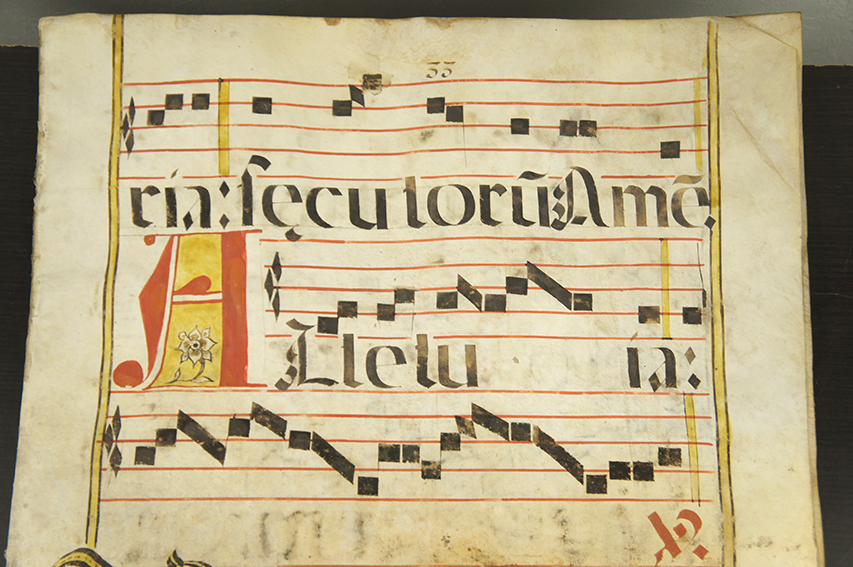 33
ria: sęculorũ Amẽ.
ALlelu ia:
℣.